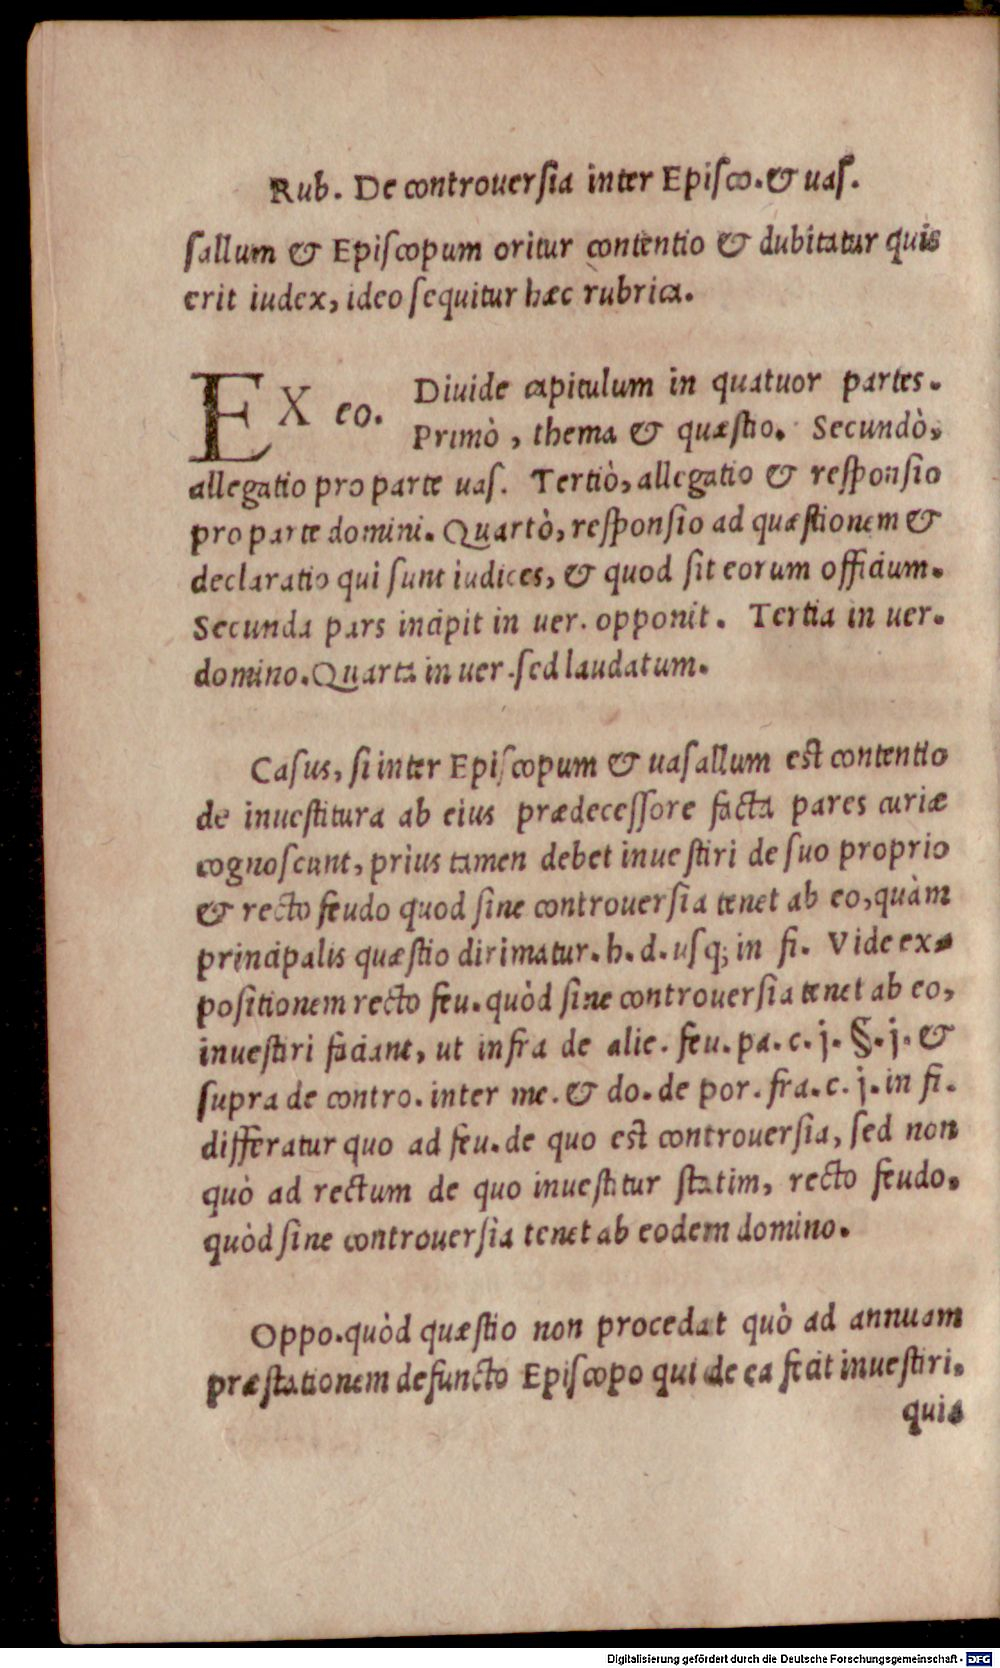 Rub. De controuersia inter Episco.& uas.
sallum & Episcopum oritur contentio & dubitatur quis
erit iudex, ideo sequitur hæc rubrica.
EX eo. Diuide capitulum in quatuor partes.
Primò, thema & quæstio. Secundò,
allegatio pro parte uas. Tertiò, allegatio & responsio
pro parte domini. Quartò, responsio ad quæstionem &
declaratio qui sunt iudices, & quod sit eorum officium.
Secunda pars incipit in uer. opponit. Tertia in uer.
domino. Quarta in uer. sed laudatum.
Casus, si inter Episcopum & uasallum est contentio
de inuestitura ab eius prædecessore facta pares curiæ
cognoscunt, prius tamen debet inuestiri de suo proprio
& recto feudo quod sine controuersia tenet ab eo, quàm
principalis quæstio dirimatur. h. d. usq; in fi. Vide ex-
positionem recto feu. quòd sine controuersia tenet ab eo,
inuestiri faciant, ut infra de alie. feu. pa. c. j. §. j. &
supra de contro. inter me. & do. de por. fra. c. j. in fi.
differatur quo ad feu. de quo est controuersia, sed non
quò ad rectum de quo inuestitur statim, recto feudo.
quòd sine controuersia tenet ab eodem domino.
Oppo. quòd quæstio non procedat quò ad annuam
præstationem defuncto Episcopo qui de ea fecit inuestiri.
quia
Digitalisierung gefördert durch die Deutsche Forschungsgemeinschaft - DFG